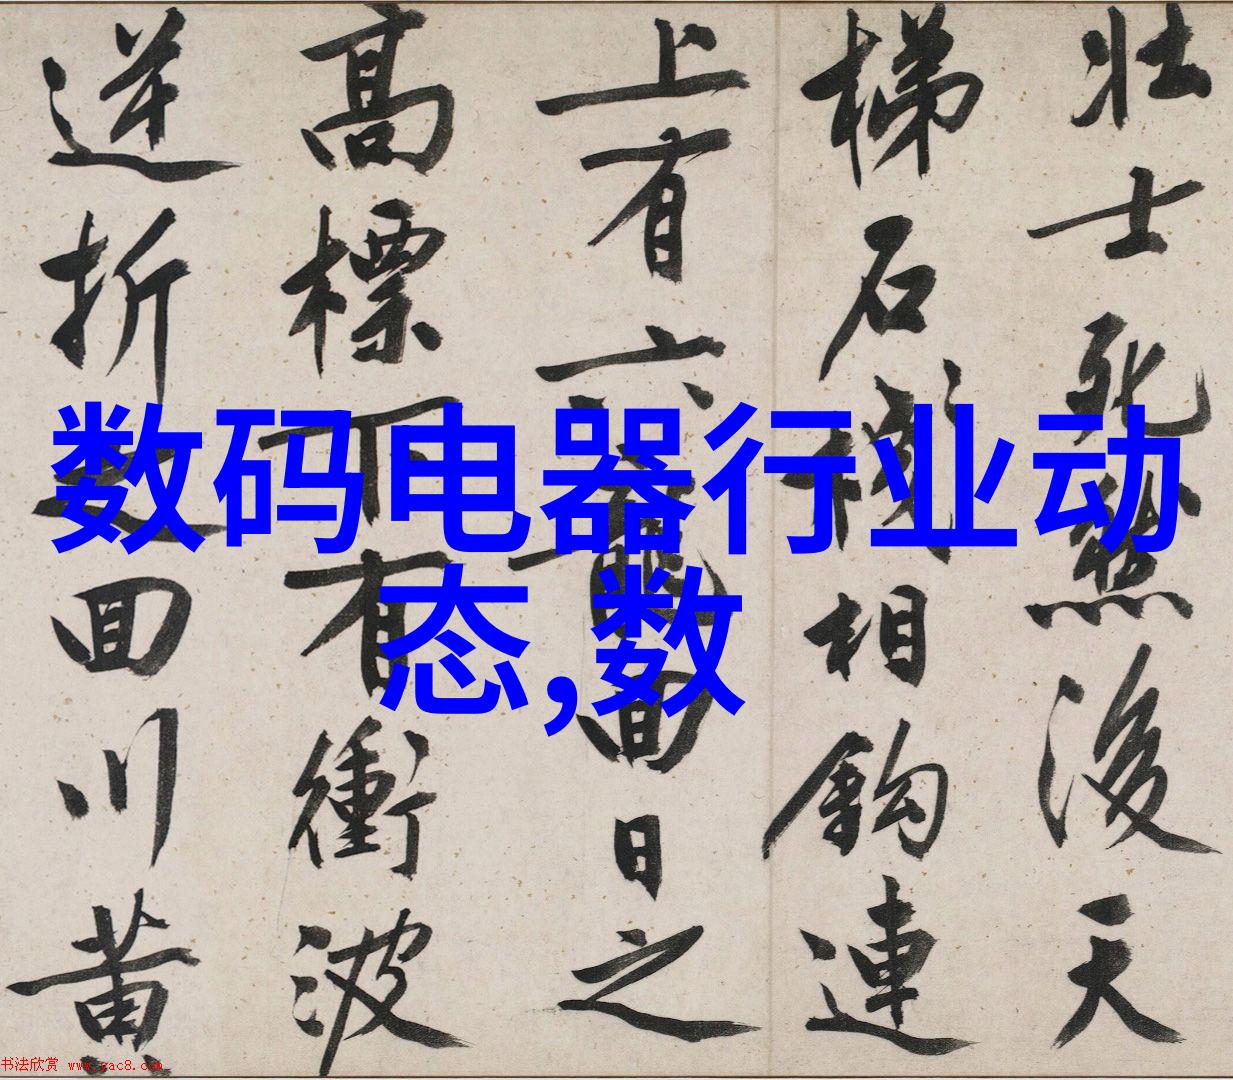 壮士死然後天
梯石棧相鈎連
上有六龍回日之
高標下有衝波
逆折之回川黄
数码电器行业动
态,数
书法欣赏 www.yac8.com